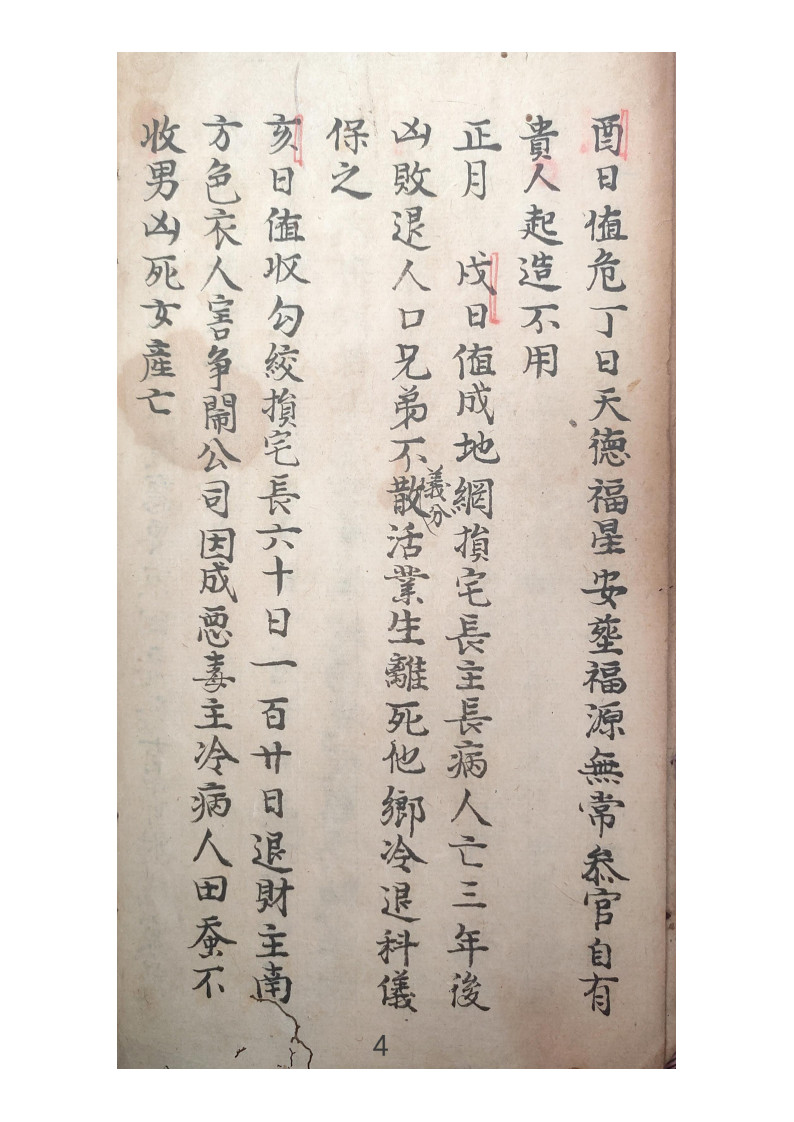 酉日值危丁日天德福星安葬福源無常叅官自有
貴人起造不用
正月 戌日值成地網損宅長主長病人亡三年後
凶敗退人口兄弟不義分散活業生離死他鄉冷退科儀
保之
亥日值収勾絞損宅長六十日一百廿日退財主南
方色衣人害争鬧公司因成惡毒主冷病人田蚕不
收男凶死女産亡
4